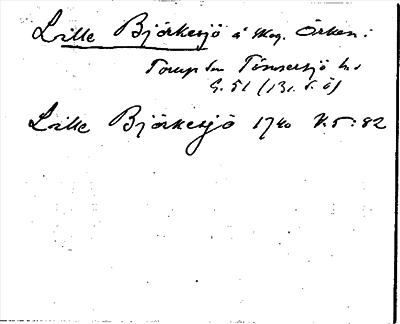 Lille Björkesjö å skog. Örken:
Torup sn Tönnersjö hd
G. 51 (13. f. ö)
Lille Björkesjö 1740 V. 5: 82